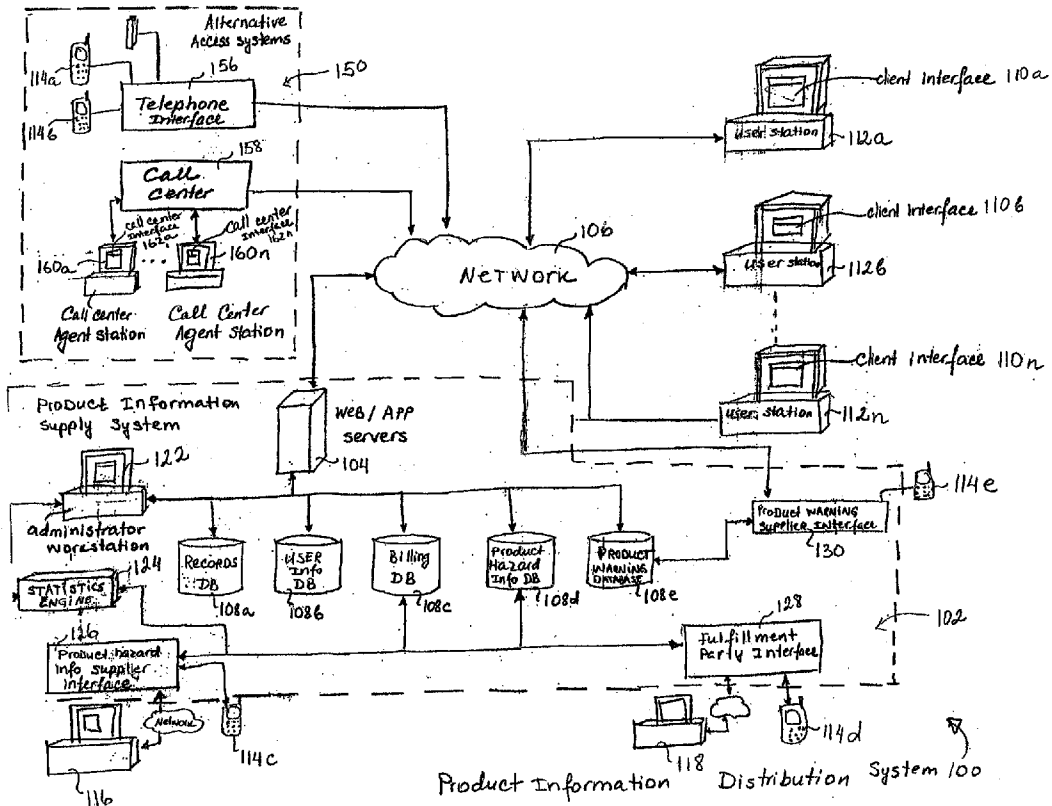 Alternative
Access systems
114a
156
150
Telephone
Interface
114b
158
Call
Center
Call center
Interface
162a
Call center
Interface
162n
160a
160n
Call center
Agent station
Call Center
Agent Station
106
Network
client Interface 110a
User station
112a
client Interface 110b
User station
112b
client Interface 110n
User station
112n
Product Information
Supply System
Web / APP
servers
104
122
administrator
workstation
124
STATISTICS
ENGINE
Records
DB
108a
USER
Info
DB
108b
Billing
DB
108c
Product
Hazard
Info DB
108d
PRODUCT
WARNING
DATABASE
108e
Product WARNING
Supplier Interface
130
114e
126
Product hazard
Info supplier
interface
128
Fulfillment
Party Interface
102
Network
116
114c
118
114d
Product Information Distribution System 100